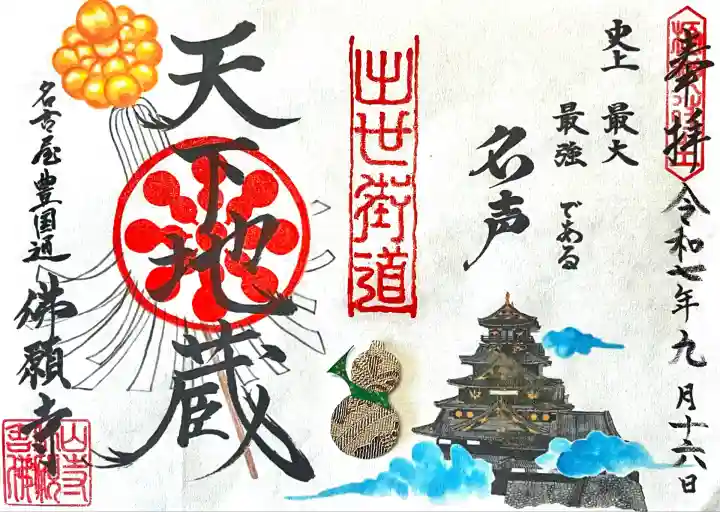 奉拝
令和七年九月十六日
史上
最大
最強
である
名声
出世街道
天下地蔵
名古屋豊国通
佛願寺